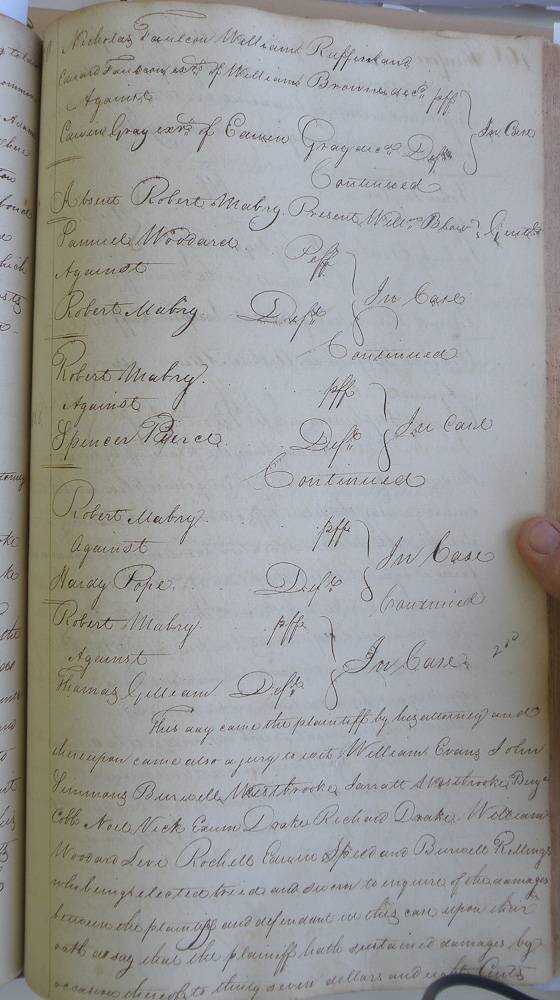 Nicholas Faulcon William Ruffin and
Edward Faulcon exrs of William Browne decd plff
Against } In Case
Edwin Gray exrs of Edwin Gray decd Defts
Continued
Absent Robert Mabry. Present Willm Blow } Gentn
Samuel Woodard Plff
Against } In Case
Robert Mabry Deft
Continued
Robert Mabry. plff
Against } In Case
Spencer Pierce Deft
Continued
Robert Mabry. plff
Against } In Case
Hardy Pope. Deft
Continued
Robert Mabry plff
Against } In Case
Thomas Gilliam Deft
This day came the plaintiff by his attorney and
thereupon came also a jury to wit William Evans John
Simmons Burwell Westbrooke Jarratt Westbrooke Benja
Cobb Noel Vick Exum Drake Richard Drake William
Woodard Levi Rochell Edwin Speed and Burwell Rollings
who being elected tried and sworn to enquire of the damages
between the plaintiff and defendant in this case upon their
oath do say that the plaintiff hath sustained damages by
occasion thereof to thirty seven dollars and eight Cents